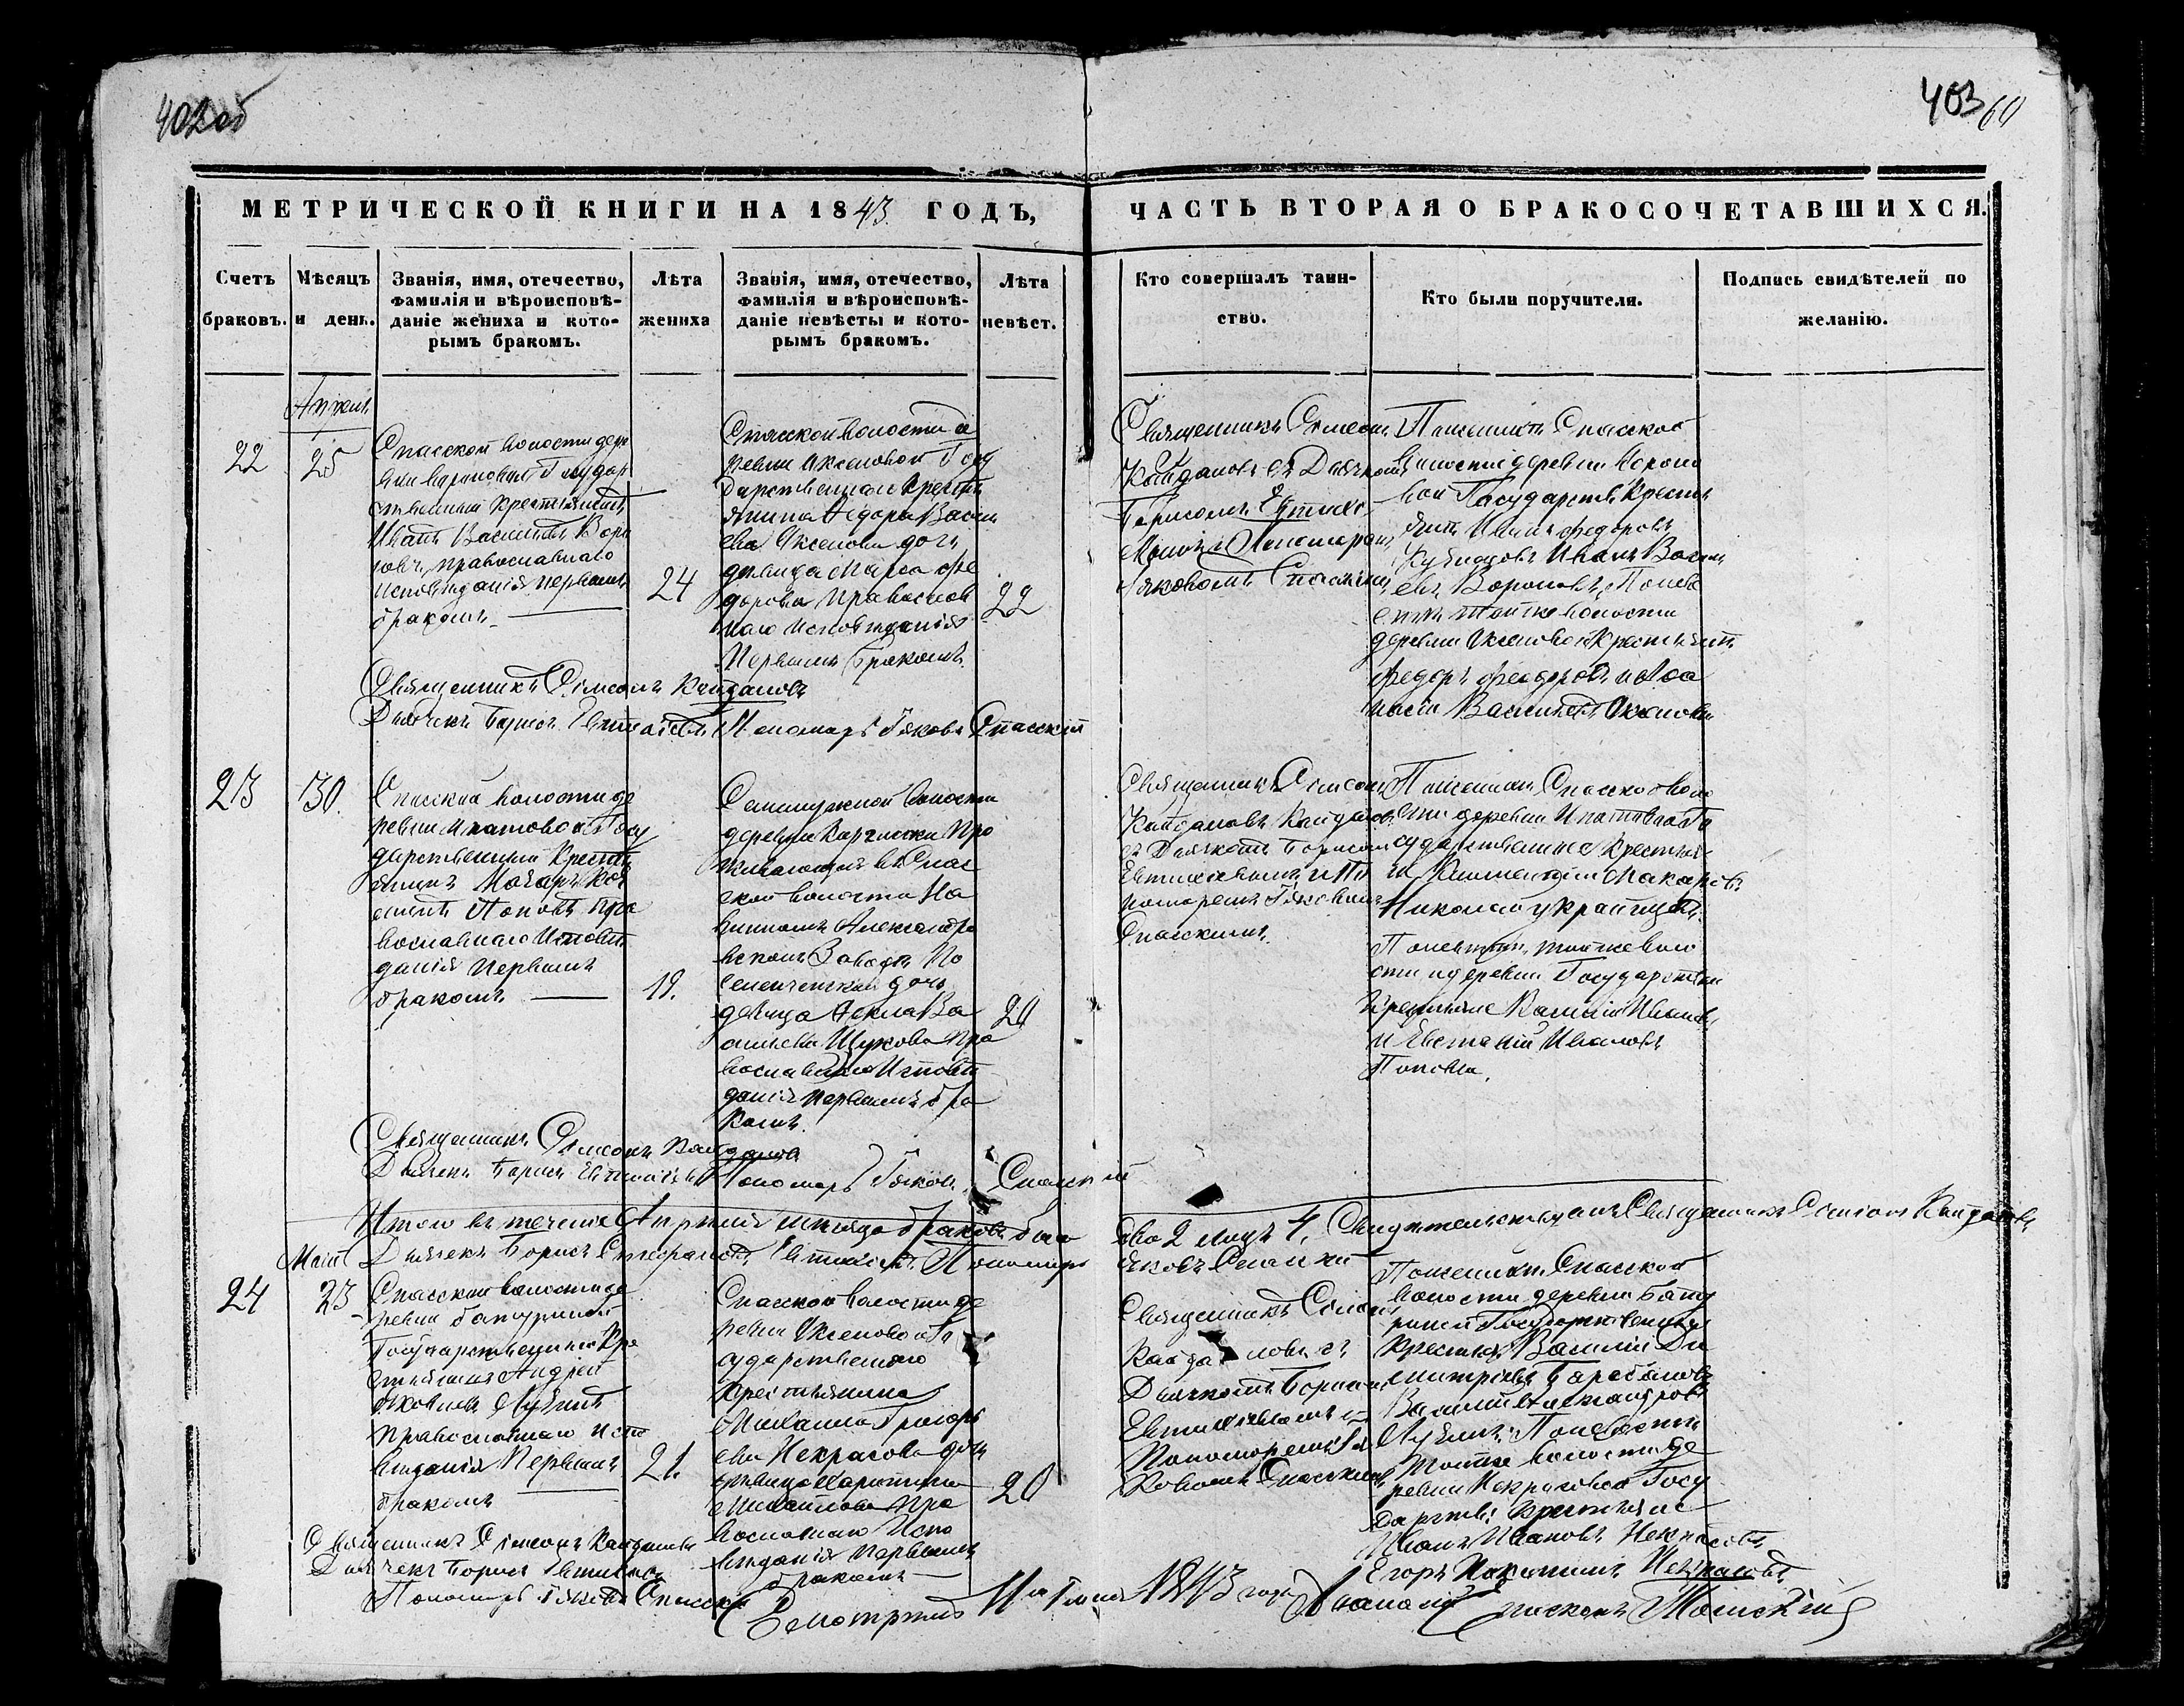 402 об
403 60
МЕТРИЧЕСКОЙ КНИГИ НА 1843 ГОДЪ,
ЧАСТЬ ВТОРАЯ О БРАКОСОЧЕТАВШИХСЯ.
Счетъ браковъ.
Мѣсяцъ и день.
Званія, имя, отечество,
фамилія и вѣроисповѣ-
даніе жениха и кото-
рымъ бракомъ.
Лѣта
жениха
Званія, имя, отечество,
фамилія и вѣроисповѣ-
даніе невѣсты и кото-
рымъ бракомъ.
Лѣта
невѣст.
Кто совершалъ таин-
ство.
Кто были поручители.
Подпись свидѣтелей по
желанію.
22
25
Спасской волости дер
Государ
ственный Крестьянинъ
Иванъ Васильевъ Воро
новъ, православнаго
исповѣданія первымъ
бракомъ
24
Спасской волости де
ревни Аксеновой Госу
дарственнаго Кресть
янина Ѳедора Василь
ева Аксенова дочь
девица Марѳа Ѳе
дорова православ
наго исповѣданія
Первымъ бракомъ
22
Священникъ Симеонъ
Кайдаловъ съ Дьячкомъ
Борисомъ
Пономаремъ
Яковомъ Спасским
По женихѣ Спасской
волости деревни Вороно
вой Государств. Кресть
яне Иванъ Федоровъ
Иванъ Василь
евъ Вороновъ, По невѣ
стѣ той же волости
деревни Аксеновой Крестьяне
Федоръ Феодоровъ и Аѳа
насій Васильевъ Аксеновы
Священникъ Симеонъ Кайдаловъ
Дьячекъ Борисъ Евтихіевъ Пономарь Іаковъ Спасскій
23
30.
Спасской волости де
ревни Ипатовой Госу
дарственный Кресть
янинъ Макаръ
Поповъ Пра
вославнаго Исповѣ
данія первымъ
бракомъ
19.
Семилужной волости
деревни
живающая въ Спас
ской волости На
Александро
вскомъ Заводѣ По
селенческая дочь
девица Ѳекла Ва
сильева Щукова Пра
вославнаго Исповѣ
данія первымъ бра
комъ.
20
Священникъ Симеонъ
Кайдаловъ
съ Дьячкомъ Борисомъ
Евтихіевымъ и По
номаремъ Іаковомъ
Спасскимъ.
По женихѣ Спасской воло
сти деревни Ипатовой Го
сударственные крестья
не Климентій Макаровъ
Николай Украинцевъ.
По невѣстѣ той же воло
сти и деревни Государствен
Крестьяне Василій Ивановъ
и Евстафій Ивановъ
Поповы.
Священникъ Симеонъ Кайдаловъ
Дьячекъ Борисъ Евтихіевъ Пономарь Іаковъ Спасскій
Итого въ теченіе Апрѣля мѣсяца браковъ было
два 2 лицъ 4, Свидѣтельствуемъ Священникъ Симеонъ Кайдаловъ
Дьячекъ Борисъ Евтихіевъ Пономарь
Яковъ Спасскій
24
23
Спасской волости де
ревни Батуриной
Государственный Кре
стьянинъ Андрей
Яковлевъ
православнаго испо
вѣданія Первымъ
бракомъ
21.
Спасской волости де
ревни Аксеновой Го
сударственнаго
крестьянина
Михаила Григорь
ева Некрасова дочь
девица Харитина
Михайлова Пра
вославнаго Испо
вѣданія первымъ
бракомъ
20
Священникъ Симеонъ
Кайдаловъ съ
Дьячкомъ Борисомъ
Евтихіевымъ и
Пономаремъ Іа
ковомъ Спасскимъ
По женихѣ Спасской
волости деревни Бату
риной Государственные
Крестьяне Василій Ди
митріевъ Барабановъ
Василій Александровъ
По невѣстѣ
той же волости де
ревни Некрасовой Госу
дарств: крестьяне
Иванъ Ивановъ Некрасовъ
Егоръ Некрасовъ
Священникъ Симеонъ Кайдаловъ
Дьячекъ Борисъ Евтихіевъ
Пономарь Іаковъ Спасскій
Смотрѣлъ 11го 1843 года Аѳанасій Епископъ Томскій